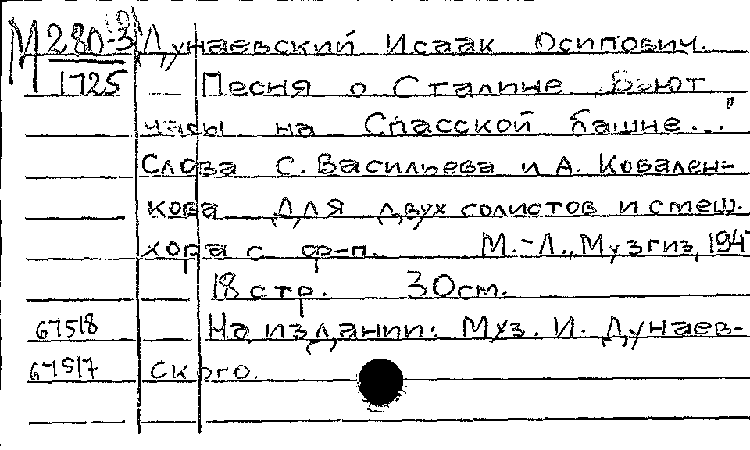 М280-3 Дунаевский Исаак Осипович.
1725 Песня о Сталине. Бьют
часы на Спасской башне..."
Слова С. Васильева и А. Ковален-
кова. Для двух солистов и смеш.
хора с ф-п. М.-Л., Музгиз, 194
18 стр. 30см.
67518 На издании: Муз. И. Дунаев-
67517 ского.